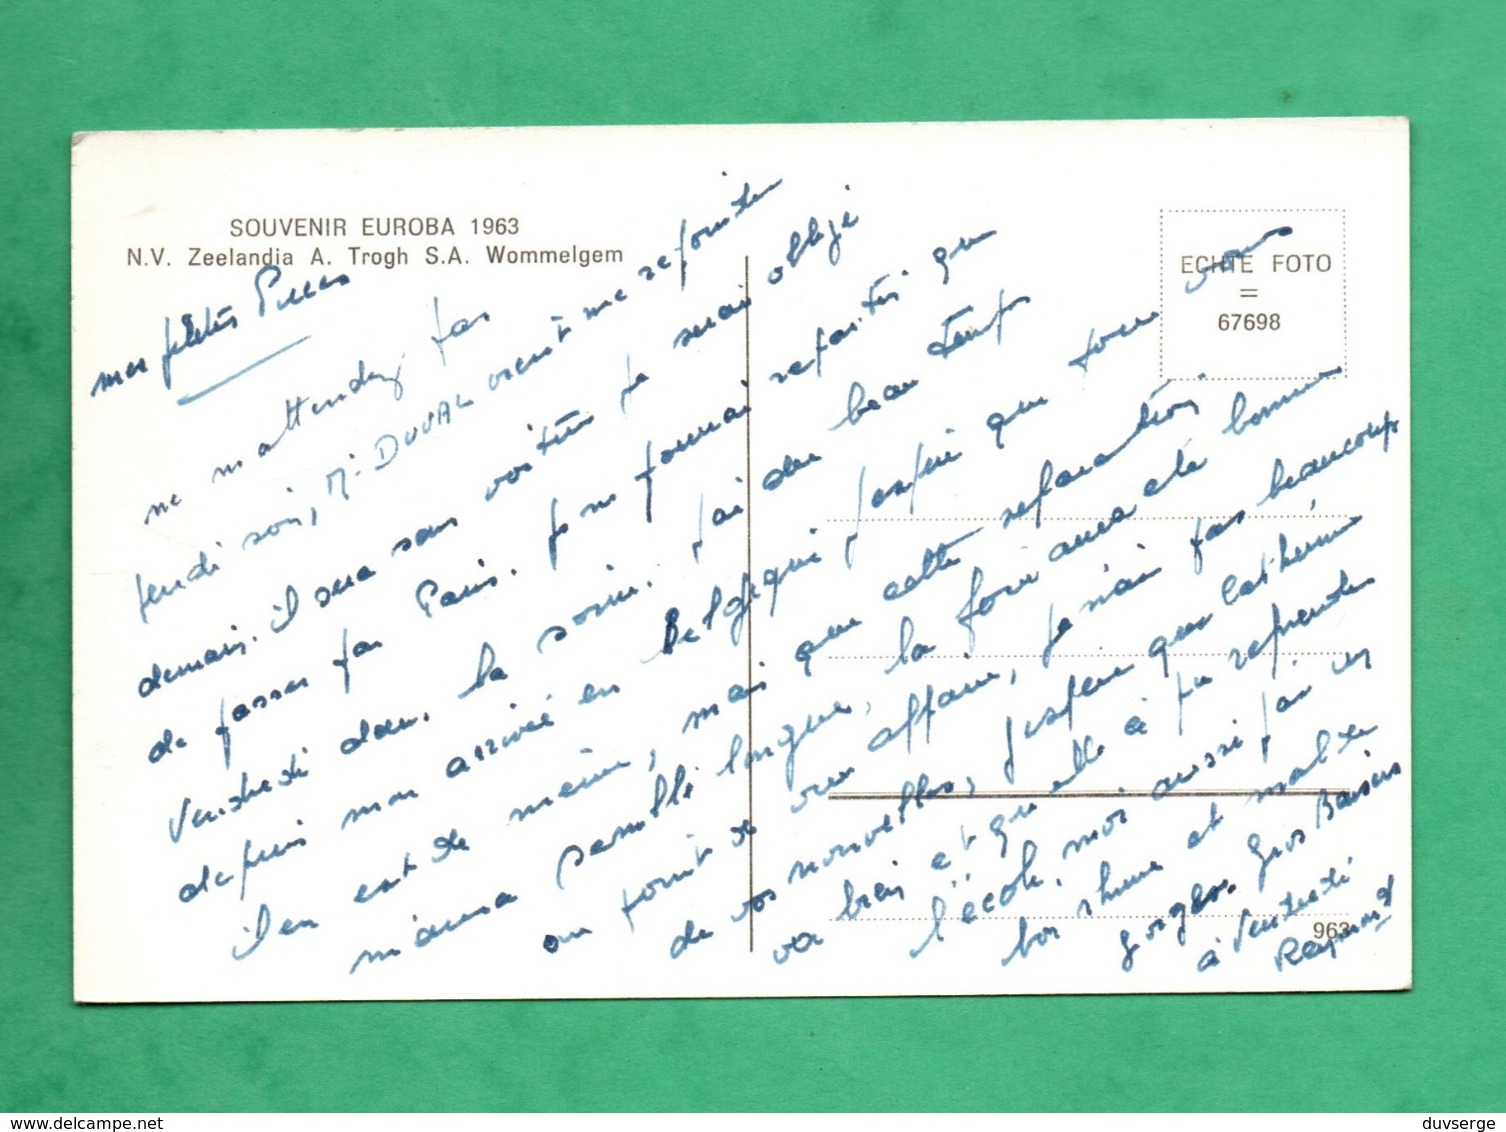 SOUVENIR EUROBA 1963
N.V. Zeelandia A. Trogh S.A. Wommelgem
ECHTE FOTO
=
67698
mes petites Puces
ne m'attendez pas
jeudi soir, Mr DUVAL vient me rejoindre
demain. il sera sans voiture je serai obligé
de passer par Paris. je ne pourrai repartir que
Vendredi dans la soirée. j'ai du beau temps
depuis mon arrivée en Belgique j'espère que pour vous
il en est de même, mais que cette separation
m'aura semblé longue, la foire aura été bonne
au point de vue affaire, je n'ai pas beaucoup
de vos nouvelles, j'espère que Catherine
va bien et qu'elle à pu reprendre
l'école. moi aussi j'ai un
bon rhume et mal de
gorge. Gros Baisers
à Vendredi
Raymond
963
delcampe.net
duvserge